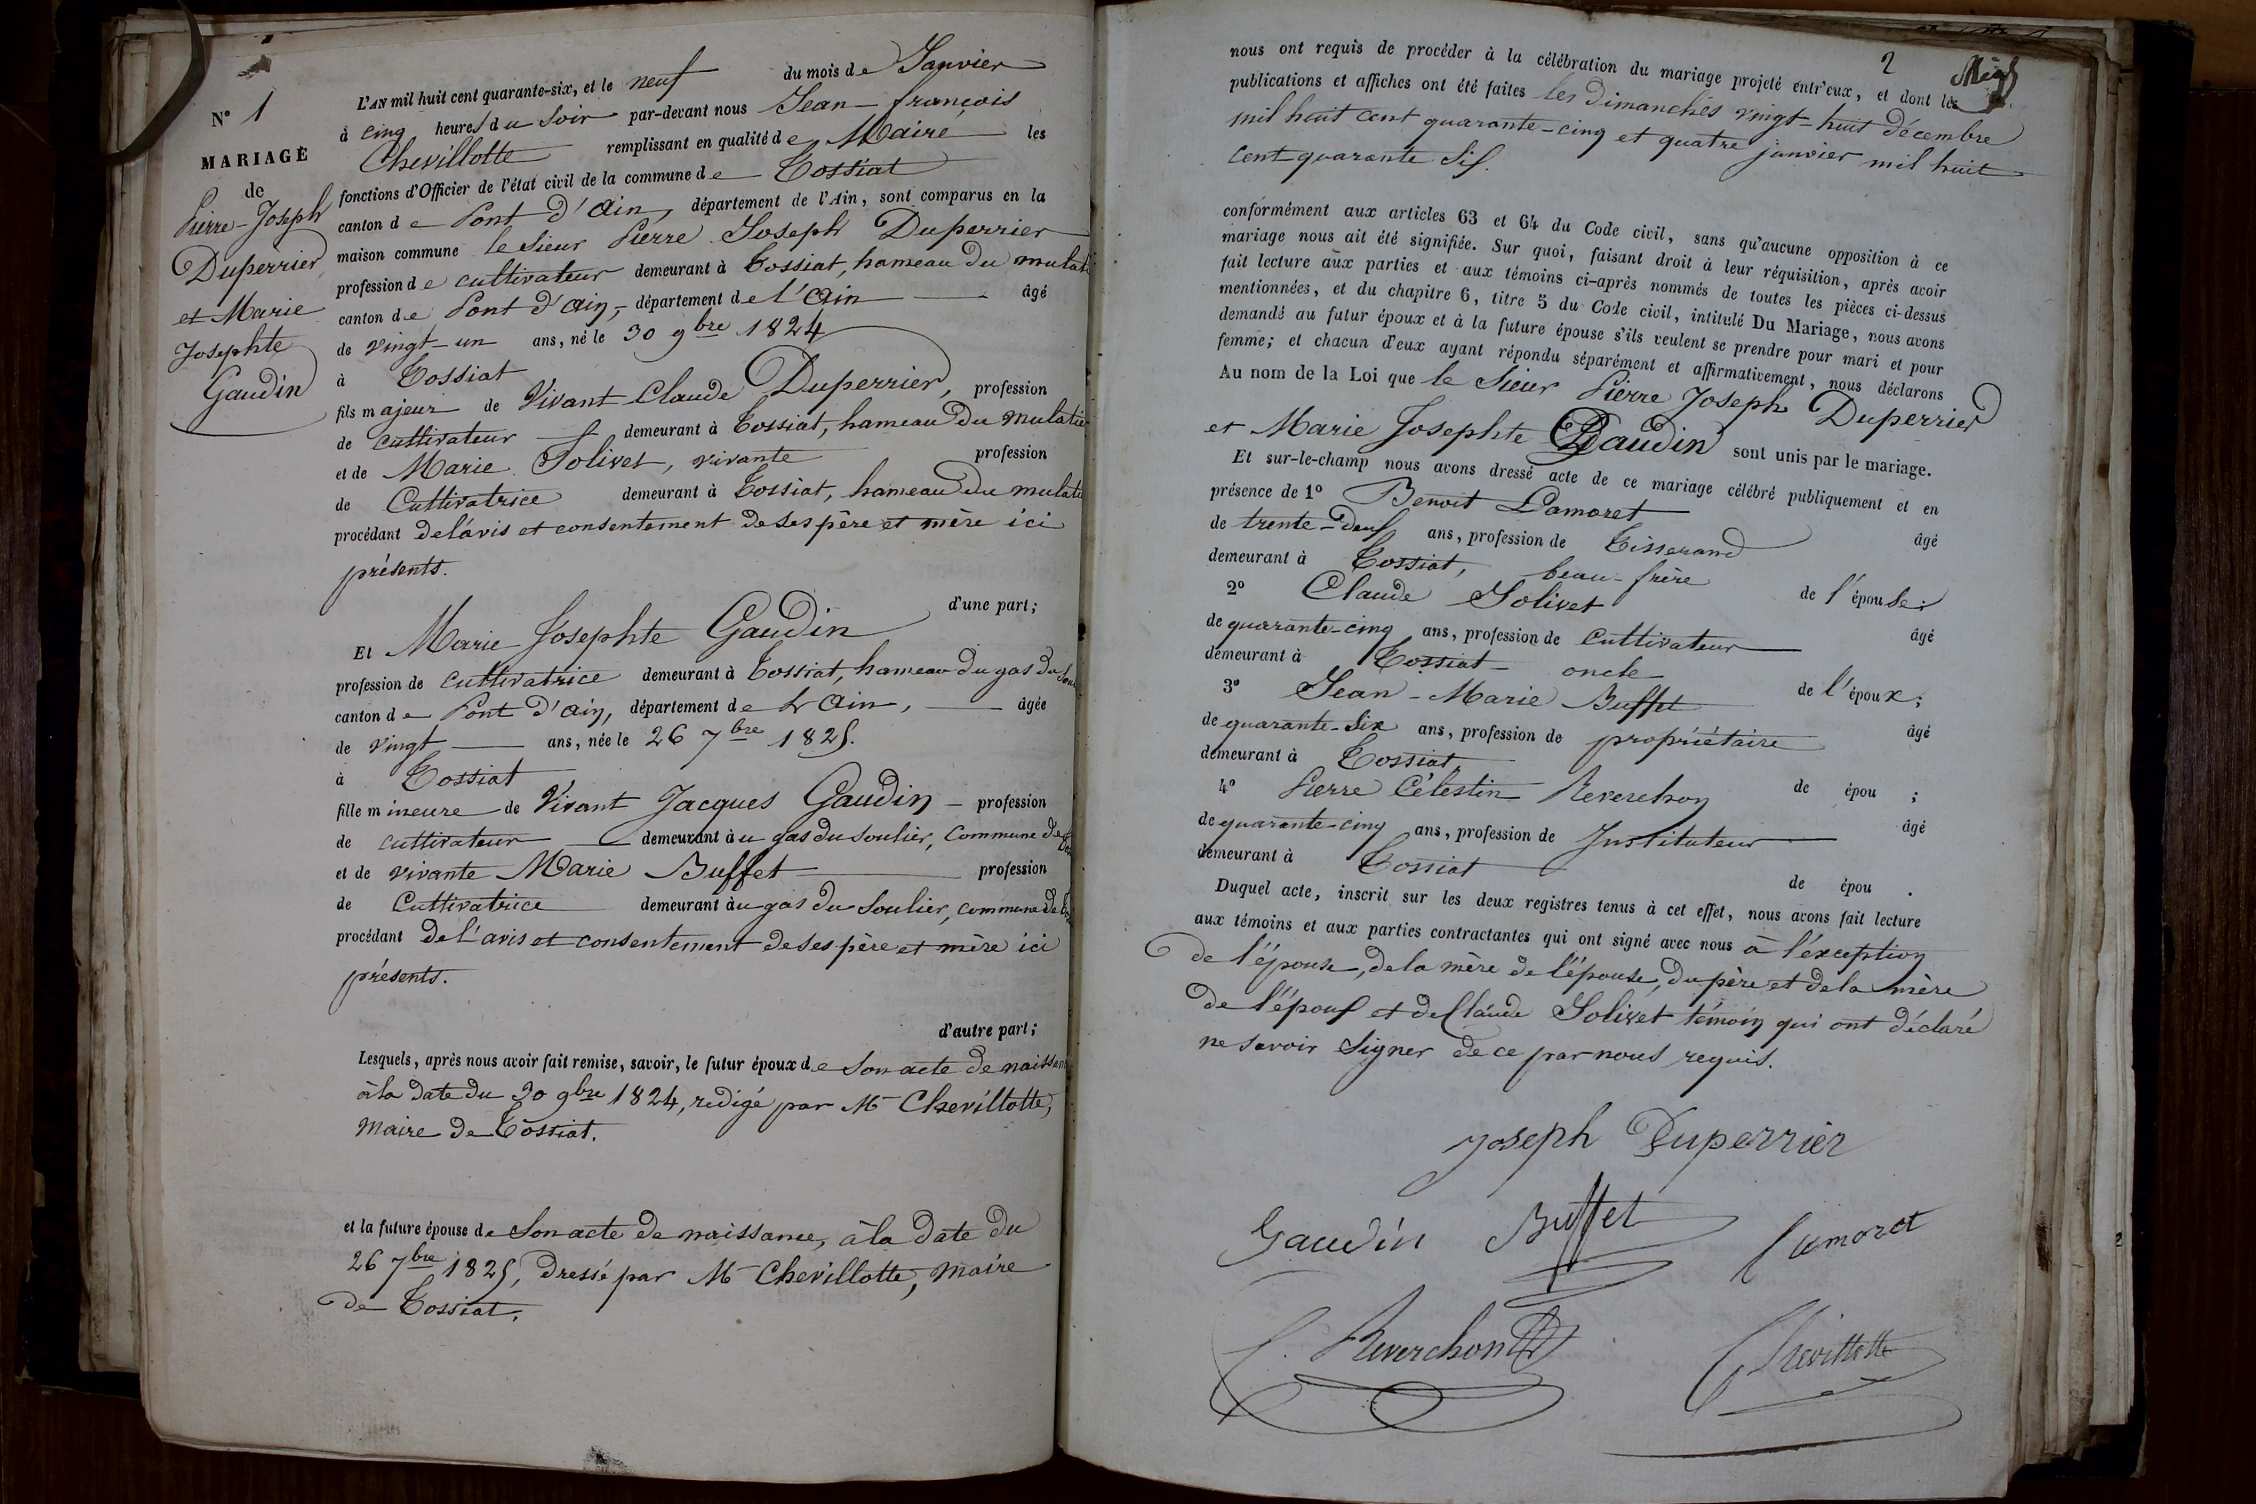 N° 1
MARIAGE
de
Pierre-Joseph
Duperrier
et Marie
Josephte
Gaudin
L'AN mil huit cent quarante-six, et le neuf du mois de Janvier
à cinq heures du soir par-devant nous Jean-françois
Chevillotte remplissant en qualité de Maire les
fonctions d'Officier de l'état civil de la commune de Tossiat
canton de Pont d'Ain, département de l'Ain, sont comparus en la
maison commune le sieur Pierre Joseph Duperrier
profession de cultivateur demeurant à Tossiat, hameau du mulati
canton de Pont d'Ain, département de l'Ain âgé
de vingt-un ans, né le 30 9bre 1824
à Tossiat
fils majeur de Vivant Claude Duperrier, profession
de cultivateur demeurant à Tossiat, hameau du mulatie
et de Marie Solivet, vivante profession
de Cultivatrice demeurant à Tossiat, hameau du mulati
procédant de l'avis et consentement de ses père et mère ici
présents.
d'une part;
Et Marie Josephte Gaudin
profession de cultivatrice demeurant à Tossiat, hameau du gas du
canton de Pont d'Ain, département de l'Ain, âgée
de vingt ans, née le 26 7bre 1825.
à Tossiat
fille mineure de Vivant Jacques Gaudin profession
de cultivateur demeurant au gas du soulier, commune de
et de vivante Marie Buffet profession
de Cultivatrice demeurant au gas du soulier, commune de
procédant de l'avis et consentement de ses père et mère ici
présents.
d'autre part;
Lesquels, après nous avoir fait remise, savoir, le futur époux de son acte de naissan
à la date du 30 9bre 1824, rédigé par Mr Chevillotte,
maire de Tossiat.
et la future épouse de son acte de naissance, à la date du
26 7bre 1825, dressé par Mr Chevillotte, maire
de Tossiat.
2
nous ont requis de procéder à la célébration du mariage projeté entr'eux, et dont les
publications et affiches ont été faites les dimanches vingt-huit décembre
mil huit cent quarante-cinq et quatre janvier mil huit
cent quarante six.
conformément aux articles 63 et 64 du Code civil, sans qu'aucune opposition à ce
mariage nous ait été signifiée. Sur quoi, faisant droit à leur réquisition, après avoir
fait lecture aux parties et aux témoins ci-après nommés de toutes les pièces ci-dessus
mentionnées, et du chapitre 6, titre 5 du Code civil, intitulé Du Mariage, nous avons
demandé au futur époux et à la future épouse s'ils veulent se prendre pour mari et pour
femme; et chacun d'eux ayant répondu séparément et affirmativement, nous déclarons
Au nom de la Loi que le sieur Pierre Joseph Duperrier
et Marie Josephte Gaudin sont unis par le mariage.
Et sur-le-champ nous avons dressé acte de ce mariage célébré publiquement et en
présence de 1° Benoit Lamoret âgé
de trente-deux ans, profession de Tisserand
demeurant à Tossiat, beau-frère de l'épouse;
2° Claude Solivet âgé
de quarante-cinq ans, profession de cultivateur
demeurant à Tossiat oncle de l'époux;
3° Jean-Marie Buffet âgé
de quarante-six ans, profession de propriétaire
demeurant à Tossiat de épou ;
4° Pierre Célestin Reverchon âgé
de quarante-cinq ans, profession de Instituteur
demeurant à Tossiat de épou .
Duquel acte, inscrit sur les deux registres tenus à cet effet, nous avons fait lecture
aux témoins et aux parties contractantes qui ont signé avec nous à l'exception
de l'épouse, de la mère de l'épouse, du père et de la mère
de l'époux et de Claude Solivet témoin qui ont déclaré
ne savoir signer de ce par nous requis.
Joseph Duperrier
Gaudin Buffet Lamoret
C. Reverchon Chevillotte
2